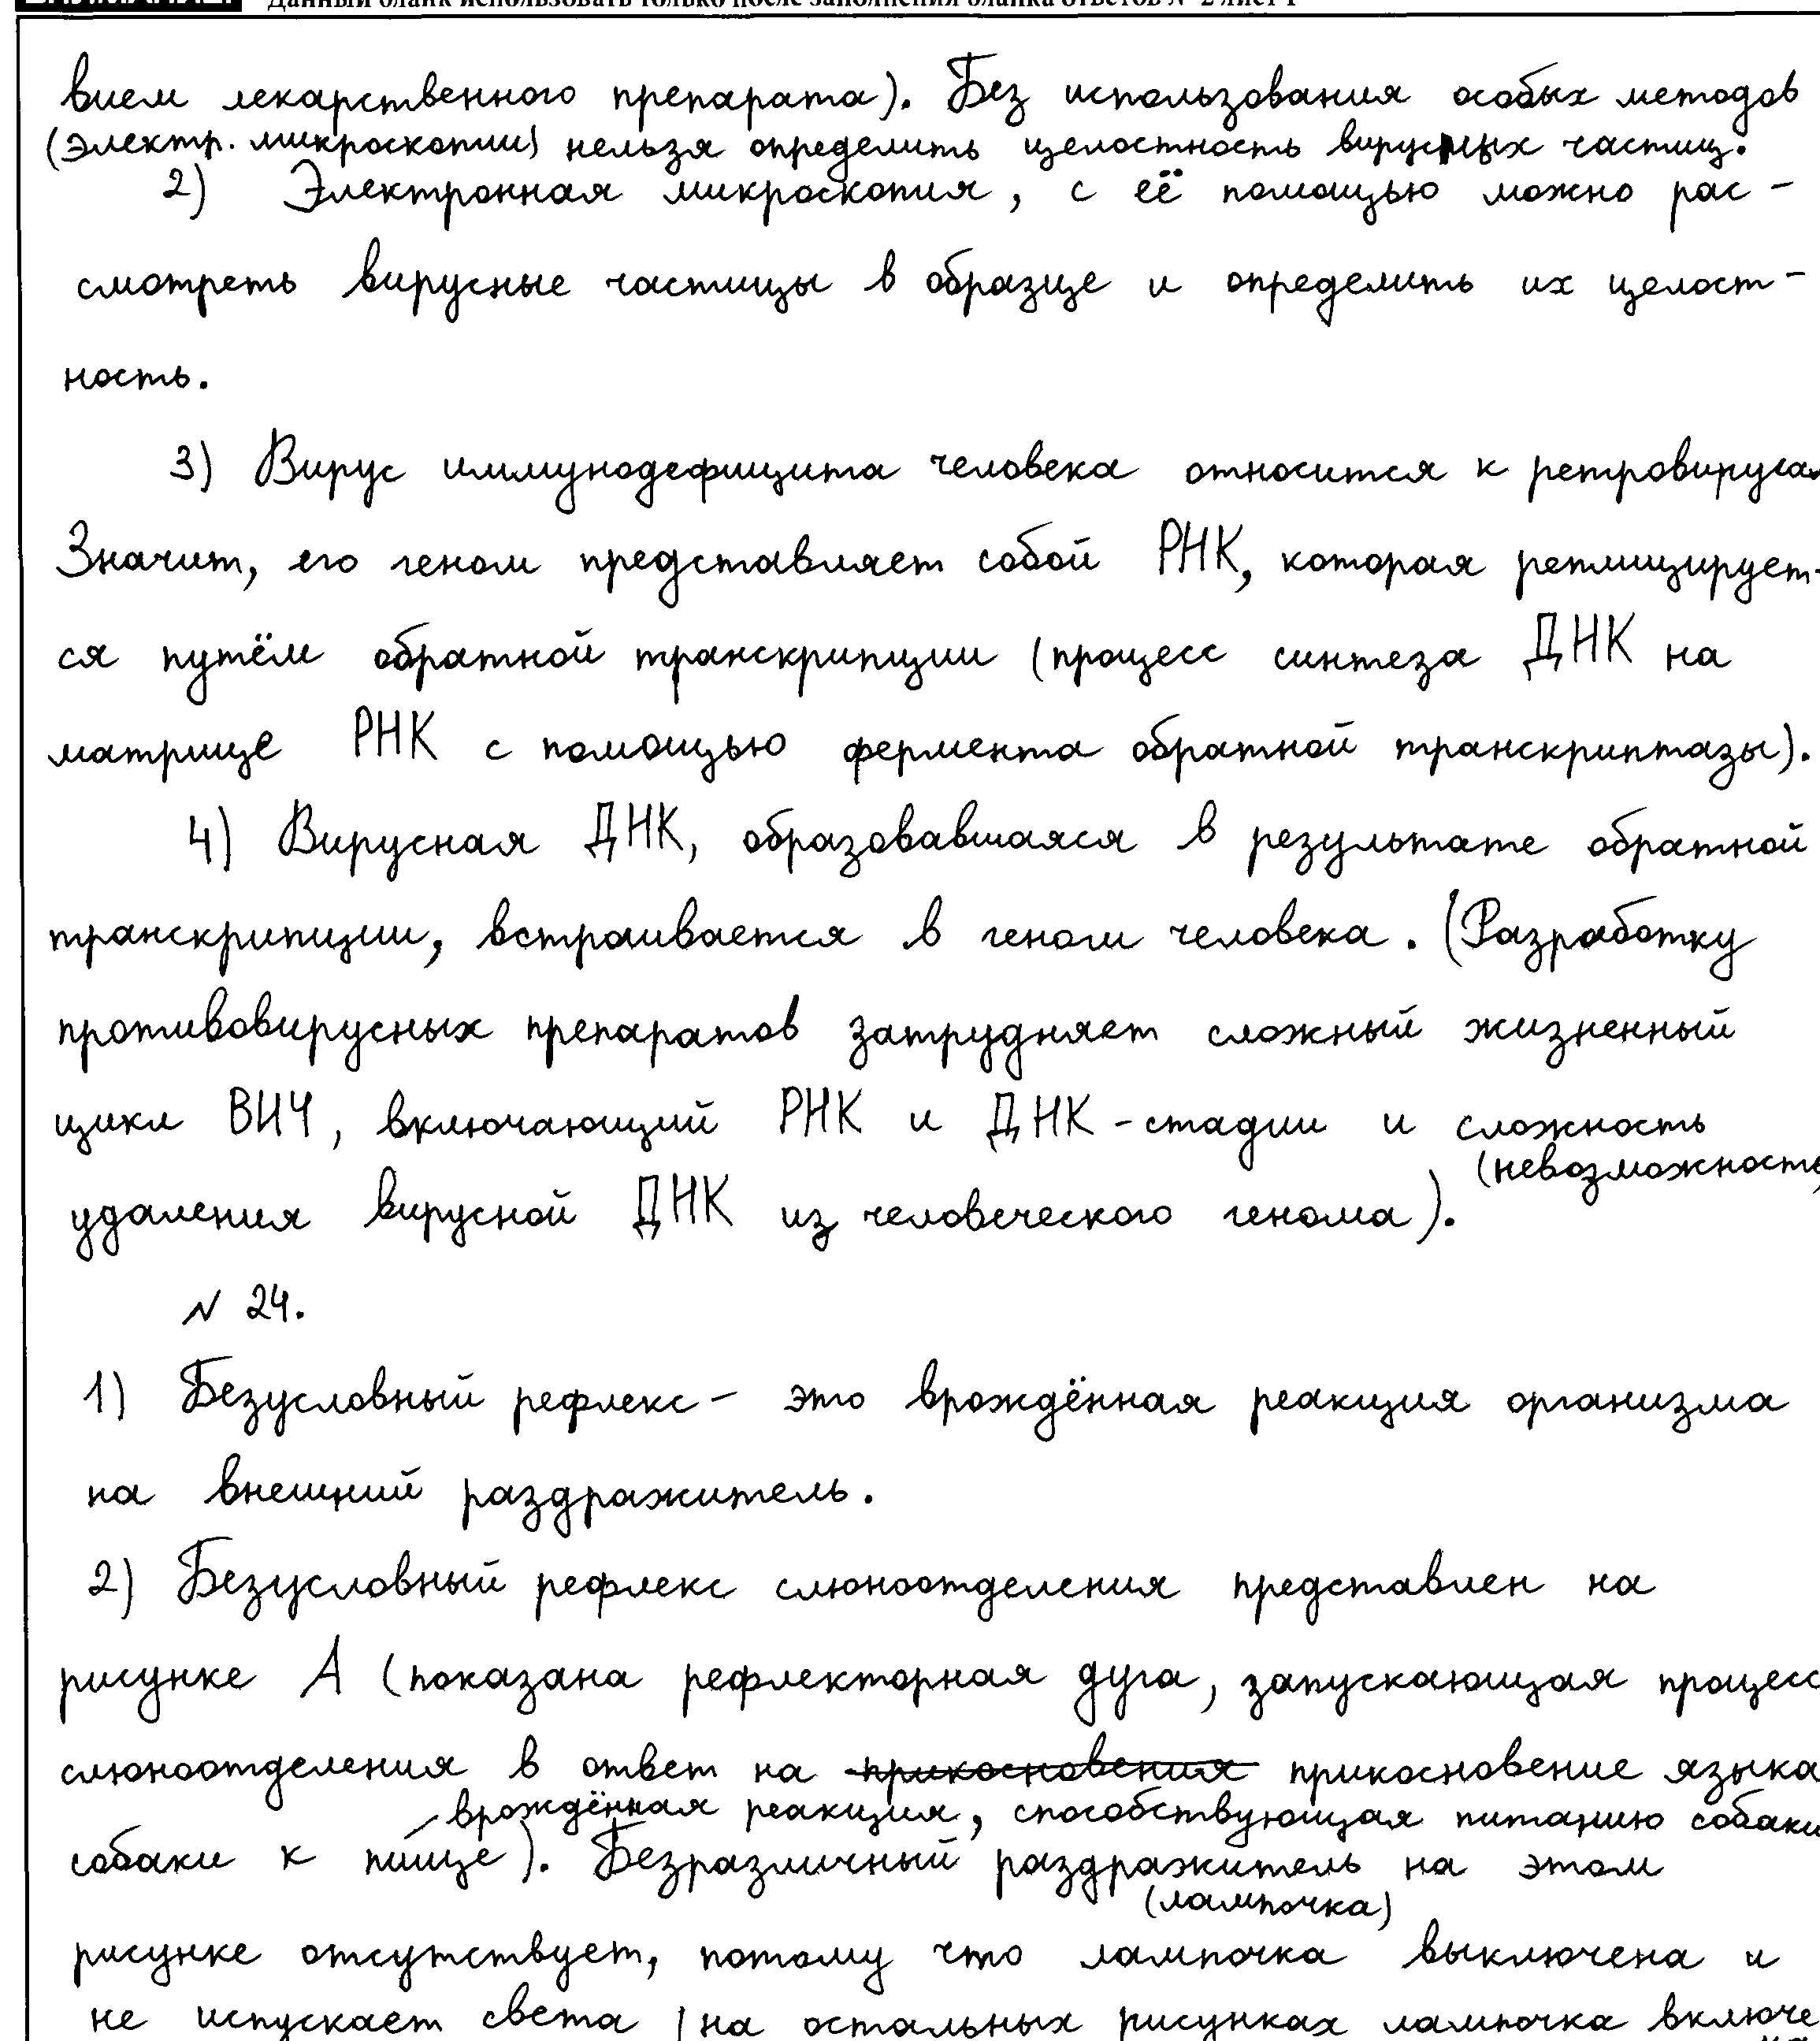 Данный бланк использовать только после заполнения бланка ответов № 2 лист 1
вием лекарственного препарата). Без использования особых методов
(электр. микроскопии) нельзя определить целостность вирусных частиц.
2) Электронная микроскопия, с её помощью можно рас-
смотреть вирусные частицы в образце и определить их целост-
ность.
3) Вирус иммунодефицита человека относится к ретровируса
Значит, его геном представляет собой РНК, которая реплицирует-
ся путём обратной транскрипции (процесс синтеза ДНК на
матрице РНК с помощью фермента обратной транскриптазы).
4) Вирусная ДНК, образовавшаяся в результате обратной
транскрипции, встраивается в геном человека. (Разработку
противовирусных препаратов затрудняет сложный жизненный
цикл ВИЧ, включающий РНК и ДНК-стадии и сложность
(невозможность)
удаления вирусной ДНК из человеческого генома).
N 24.
1) Безусловный рефлекс – это врождённая реакция организма
на внешний раздражитель.
2) Безусловный рефлекс слюноотделения представлен на
рисунке А (показана рефлекторная дуга, запускающая процесс
слюноотделения в ответ на прикосновения прикосновение языка
– врождённая реакция, способствующая питанию собаки
собаки к пище). Безразличный раздражитель на этом
(лампочка)
рисунке отсутствует, потому что лампочка выключена и
не испускает света (на остальных рисунках лампочка включе